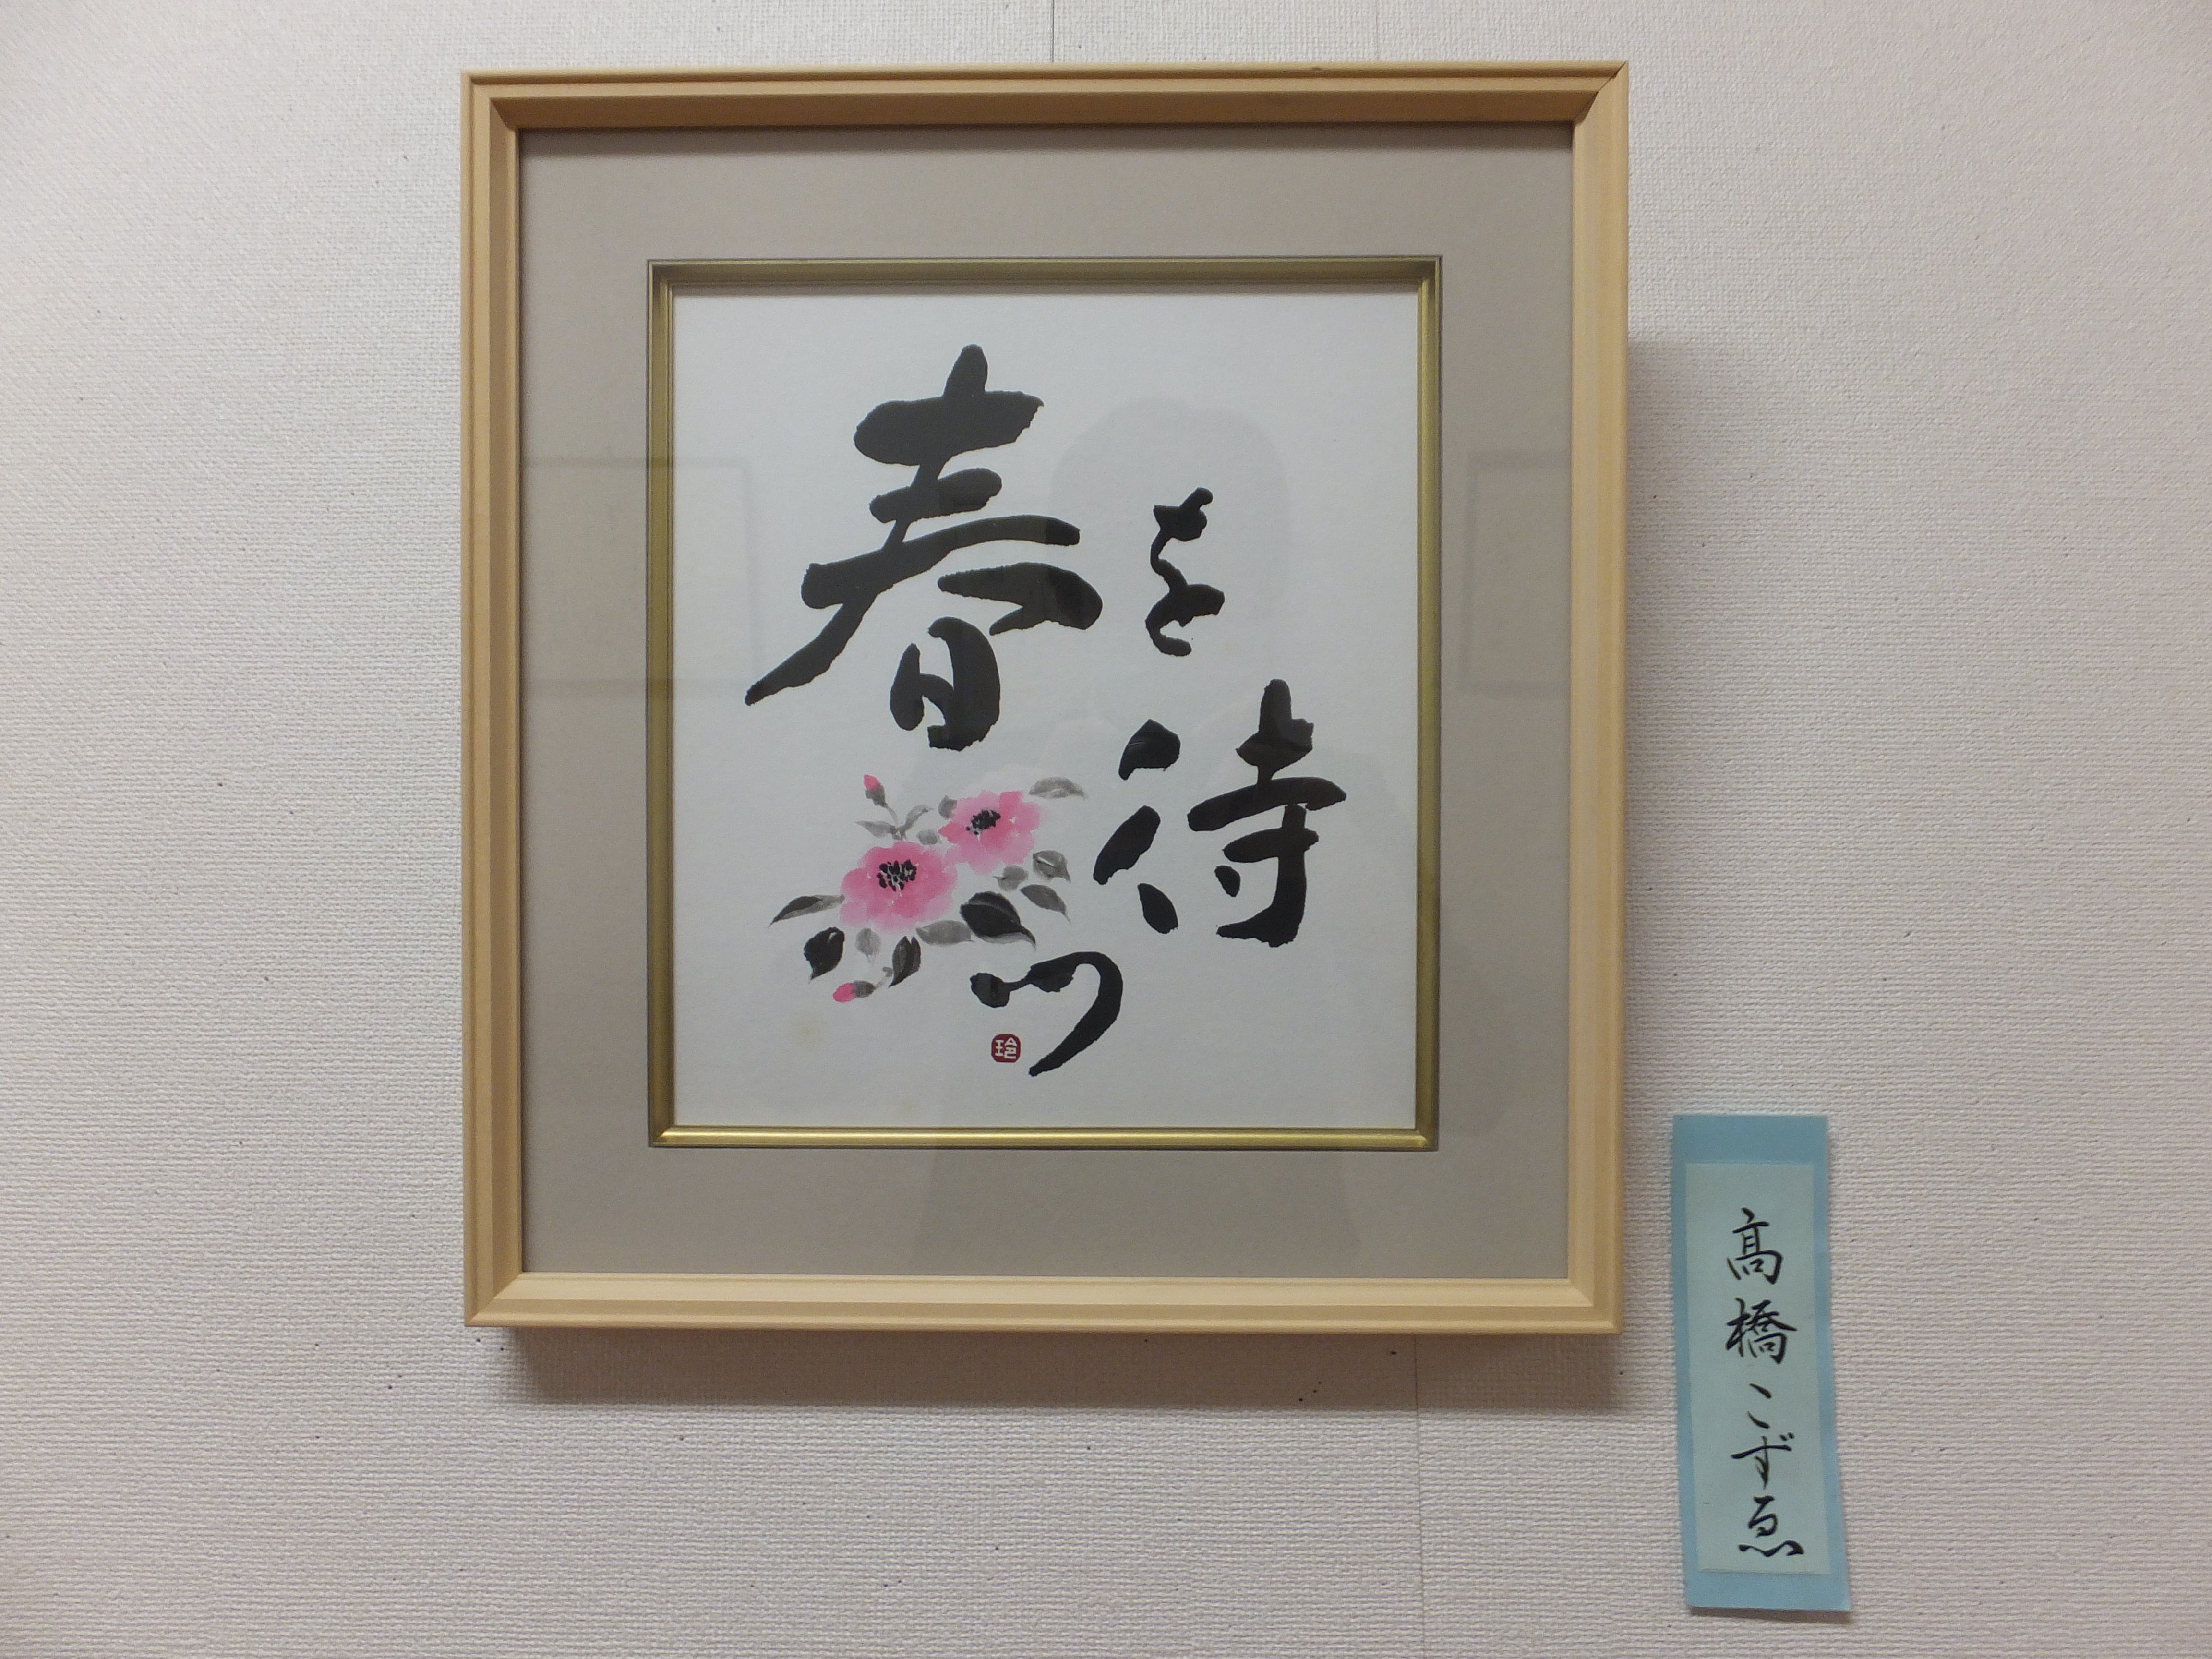 春を待つ
玲
髙橋こずゑ